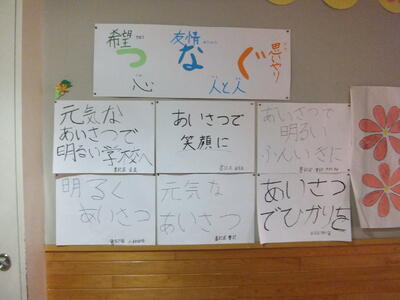 希望
友情
思いやり
つなぐ
心
人と人
元気な
あいさつで
明るい学校へ
あいさつで
笑顔に
あいさつで
明るい
ふんいきに
明るく
あいさつ
元気な
あいさつ
あいさつ
でひかりを